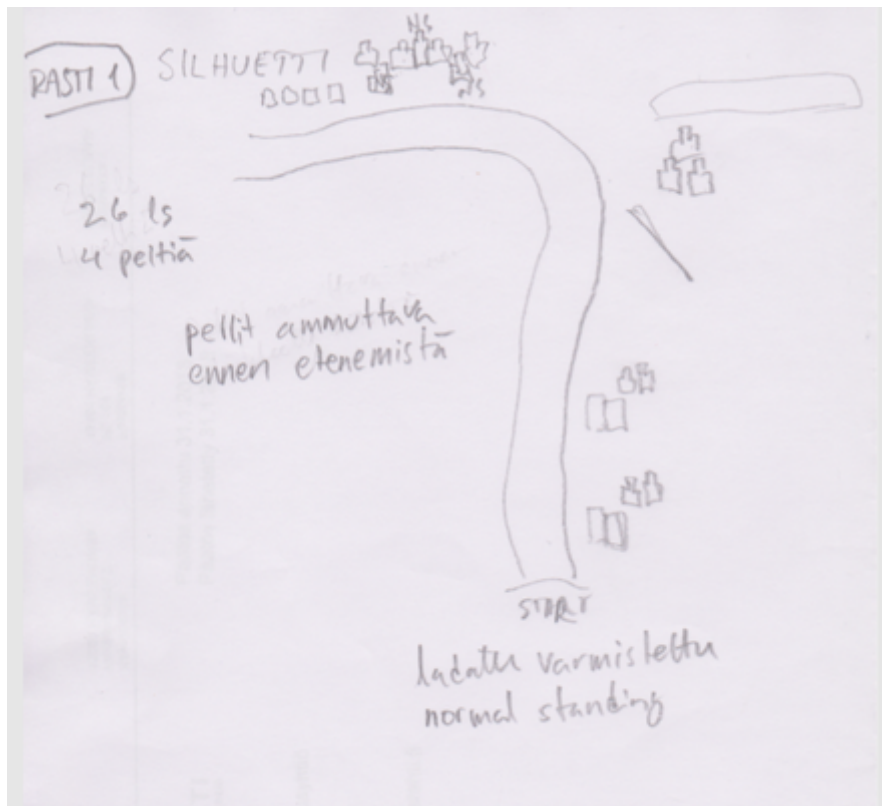 RASTI 1
SILHUETTI
NS
NS
NS
26 ls
4 peltiä
pellit ammuttava
ennen etenemistä
START
ladattu varmistettu
normal standing